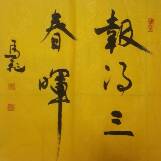 報得三
春暉